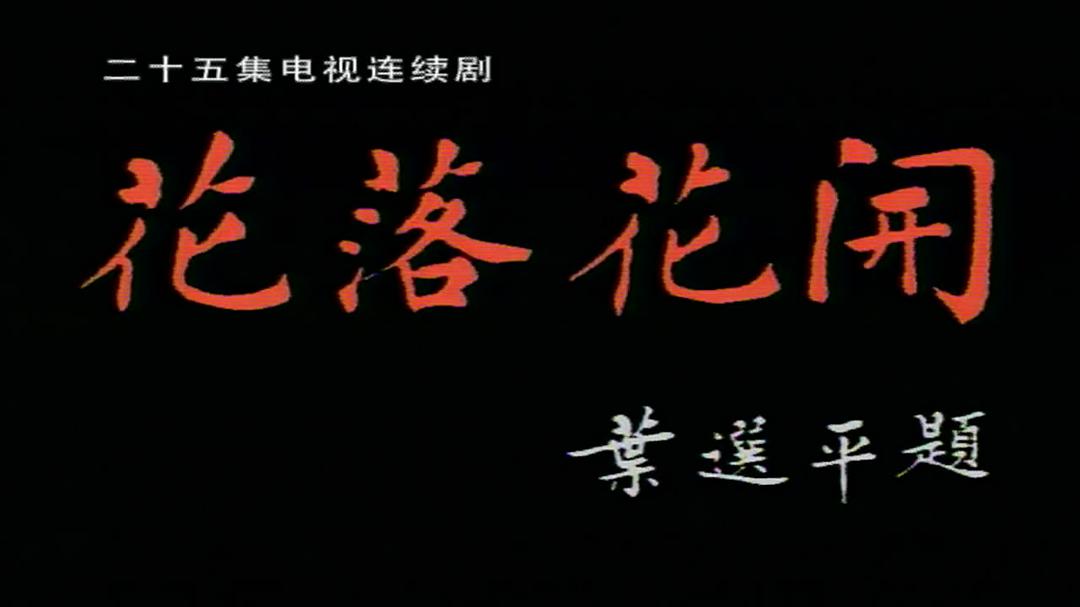 二十五集电视连续剧
花落花開
葉選平題